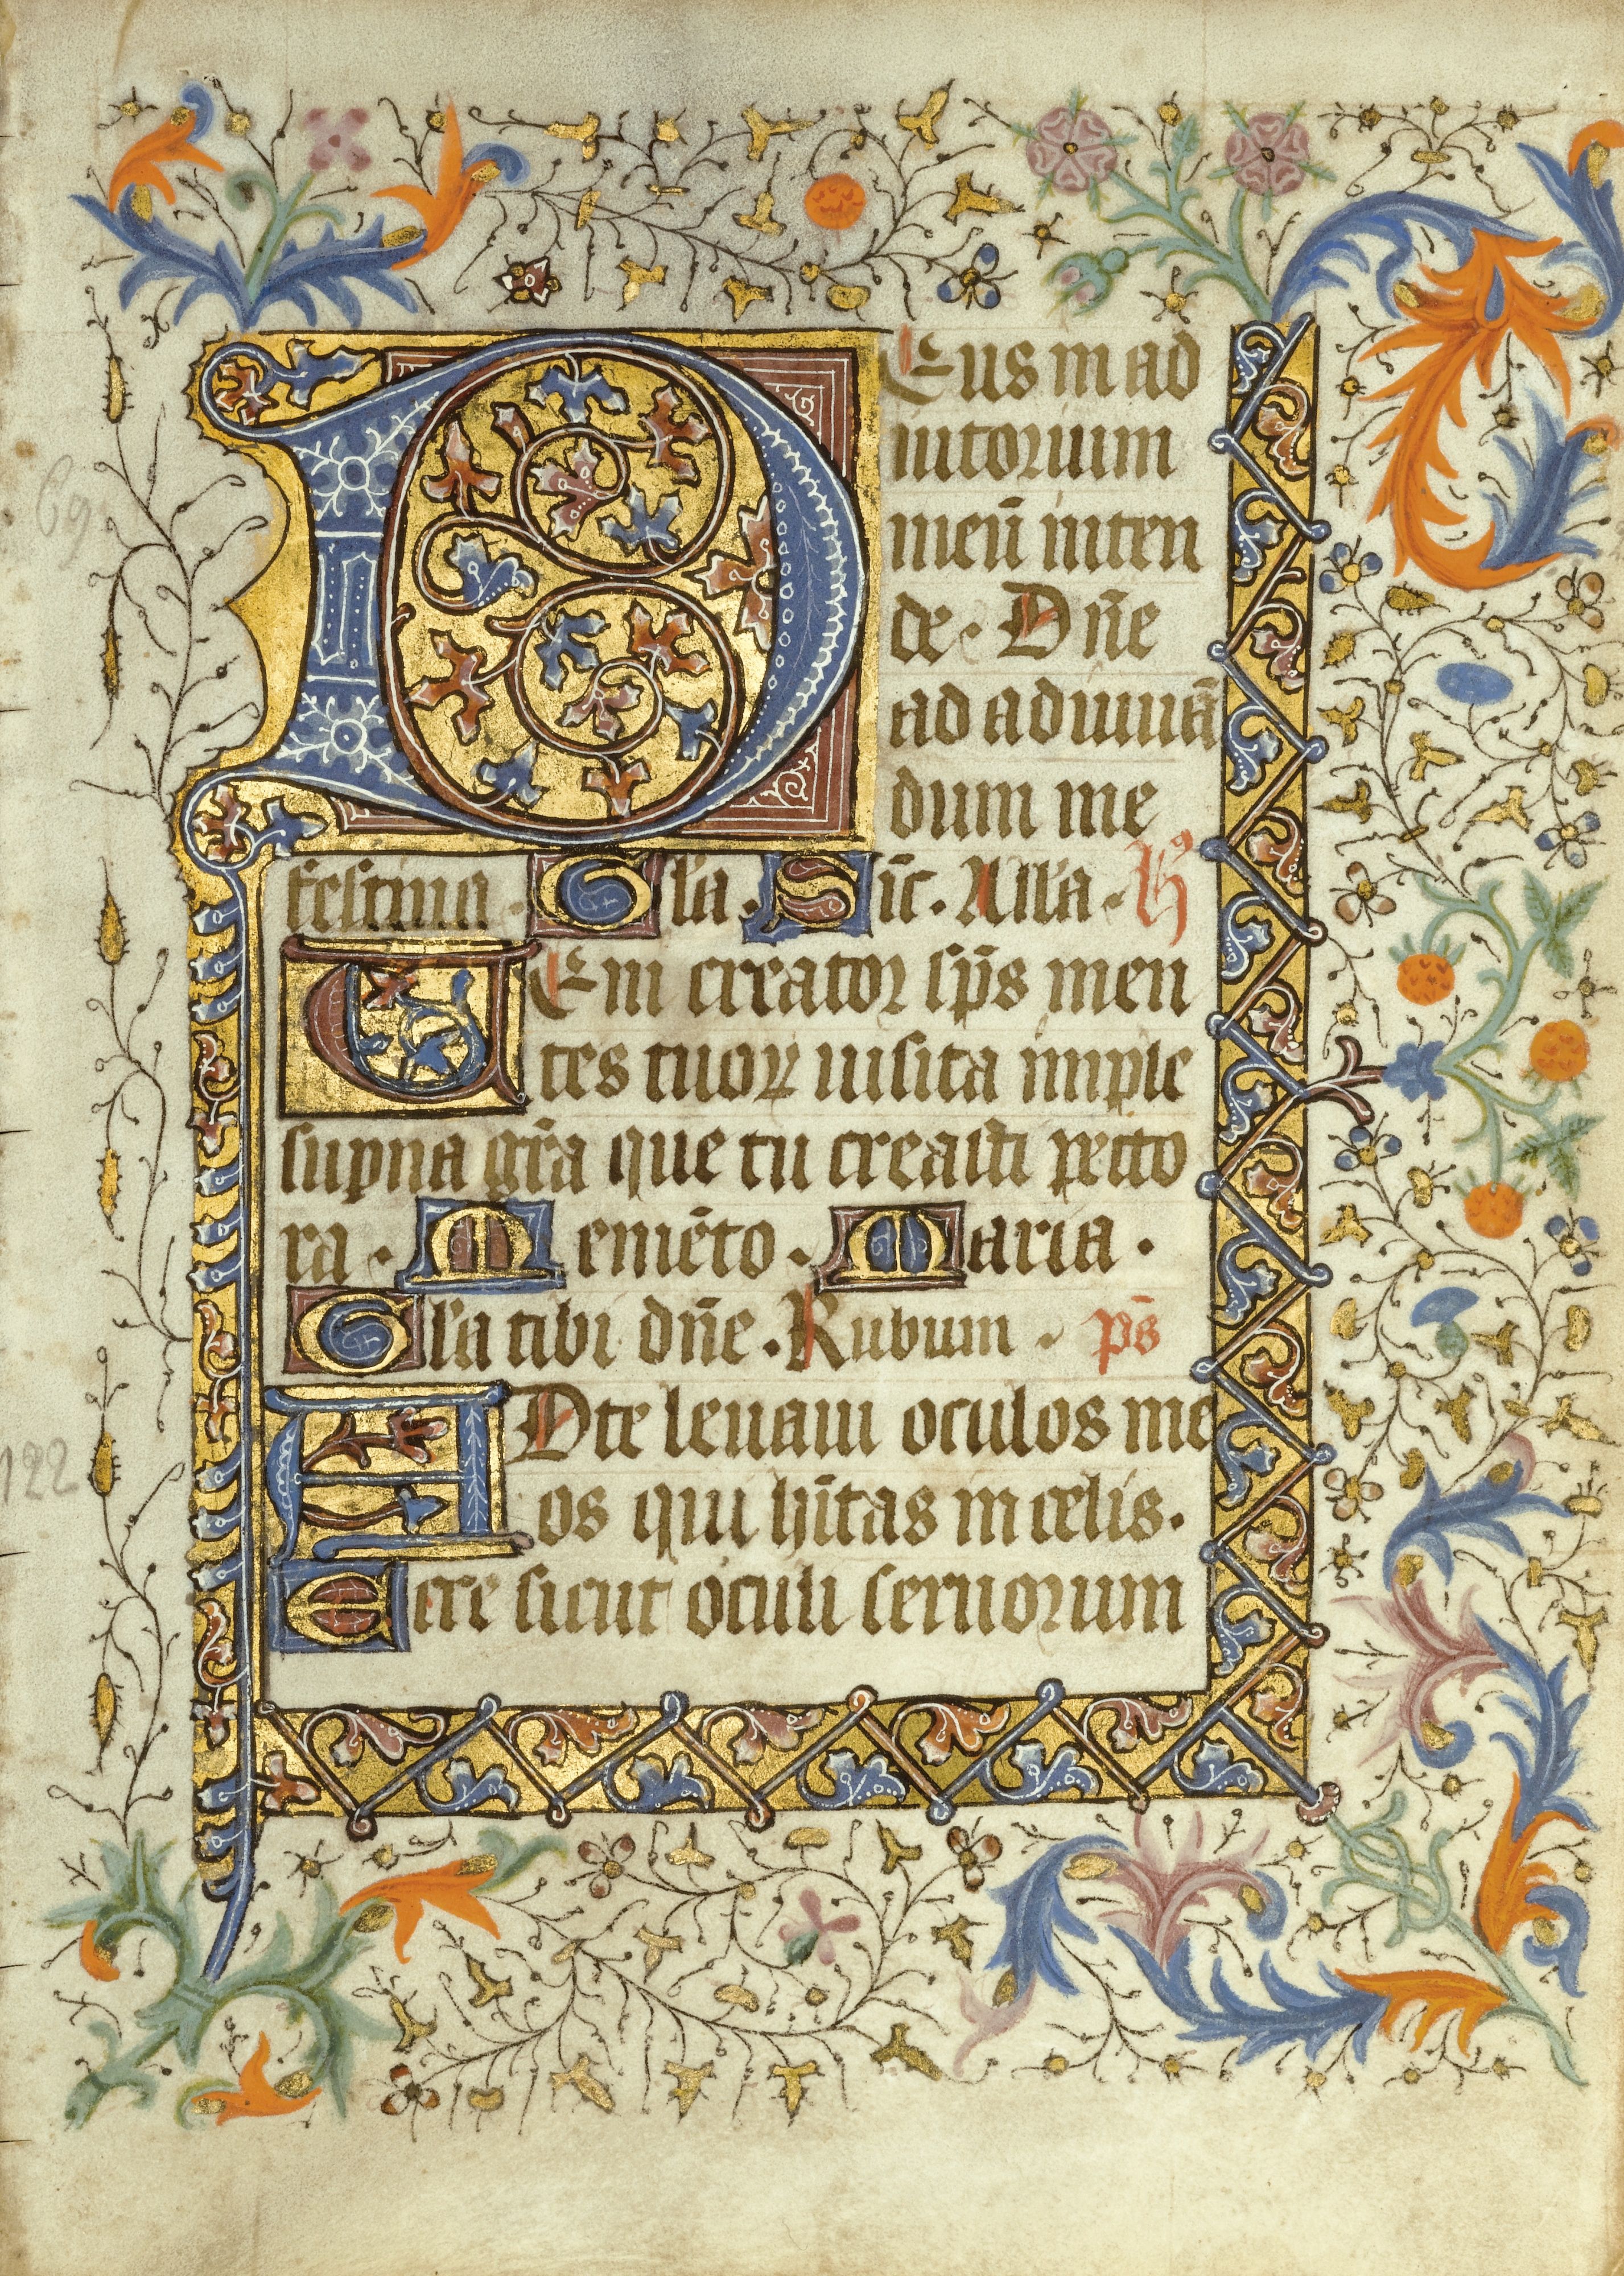 DEus in ad
iutorium
meū inten
de. Dñe
ad adiuuā
dum me
festina. Gla. Sic̄. Alla. hº
VEni creator sp̄s men
tes tuoꝝ uisita imple
supna gr̄a que tu creasti pecto
ra. Memēto. Maria.
Gla tibi dñe. Rubum. ps̄
ADte leuaui oculos me
os qui hītas in celis.
Ecce sicut oculi seruorum
69
122